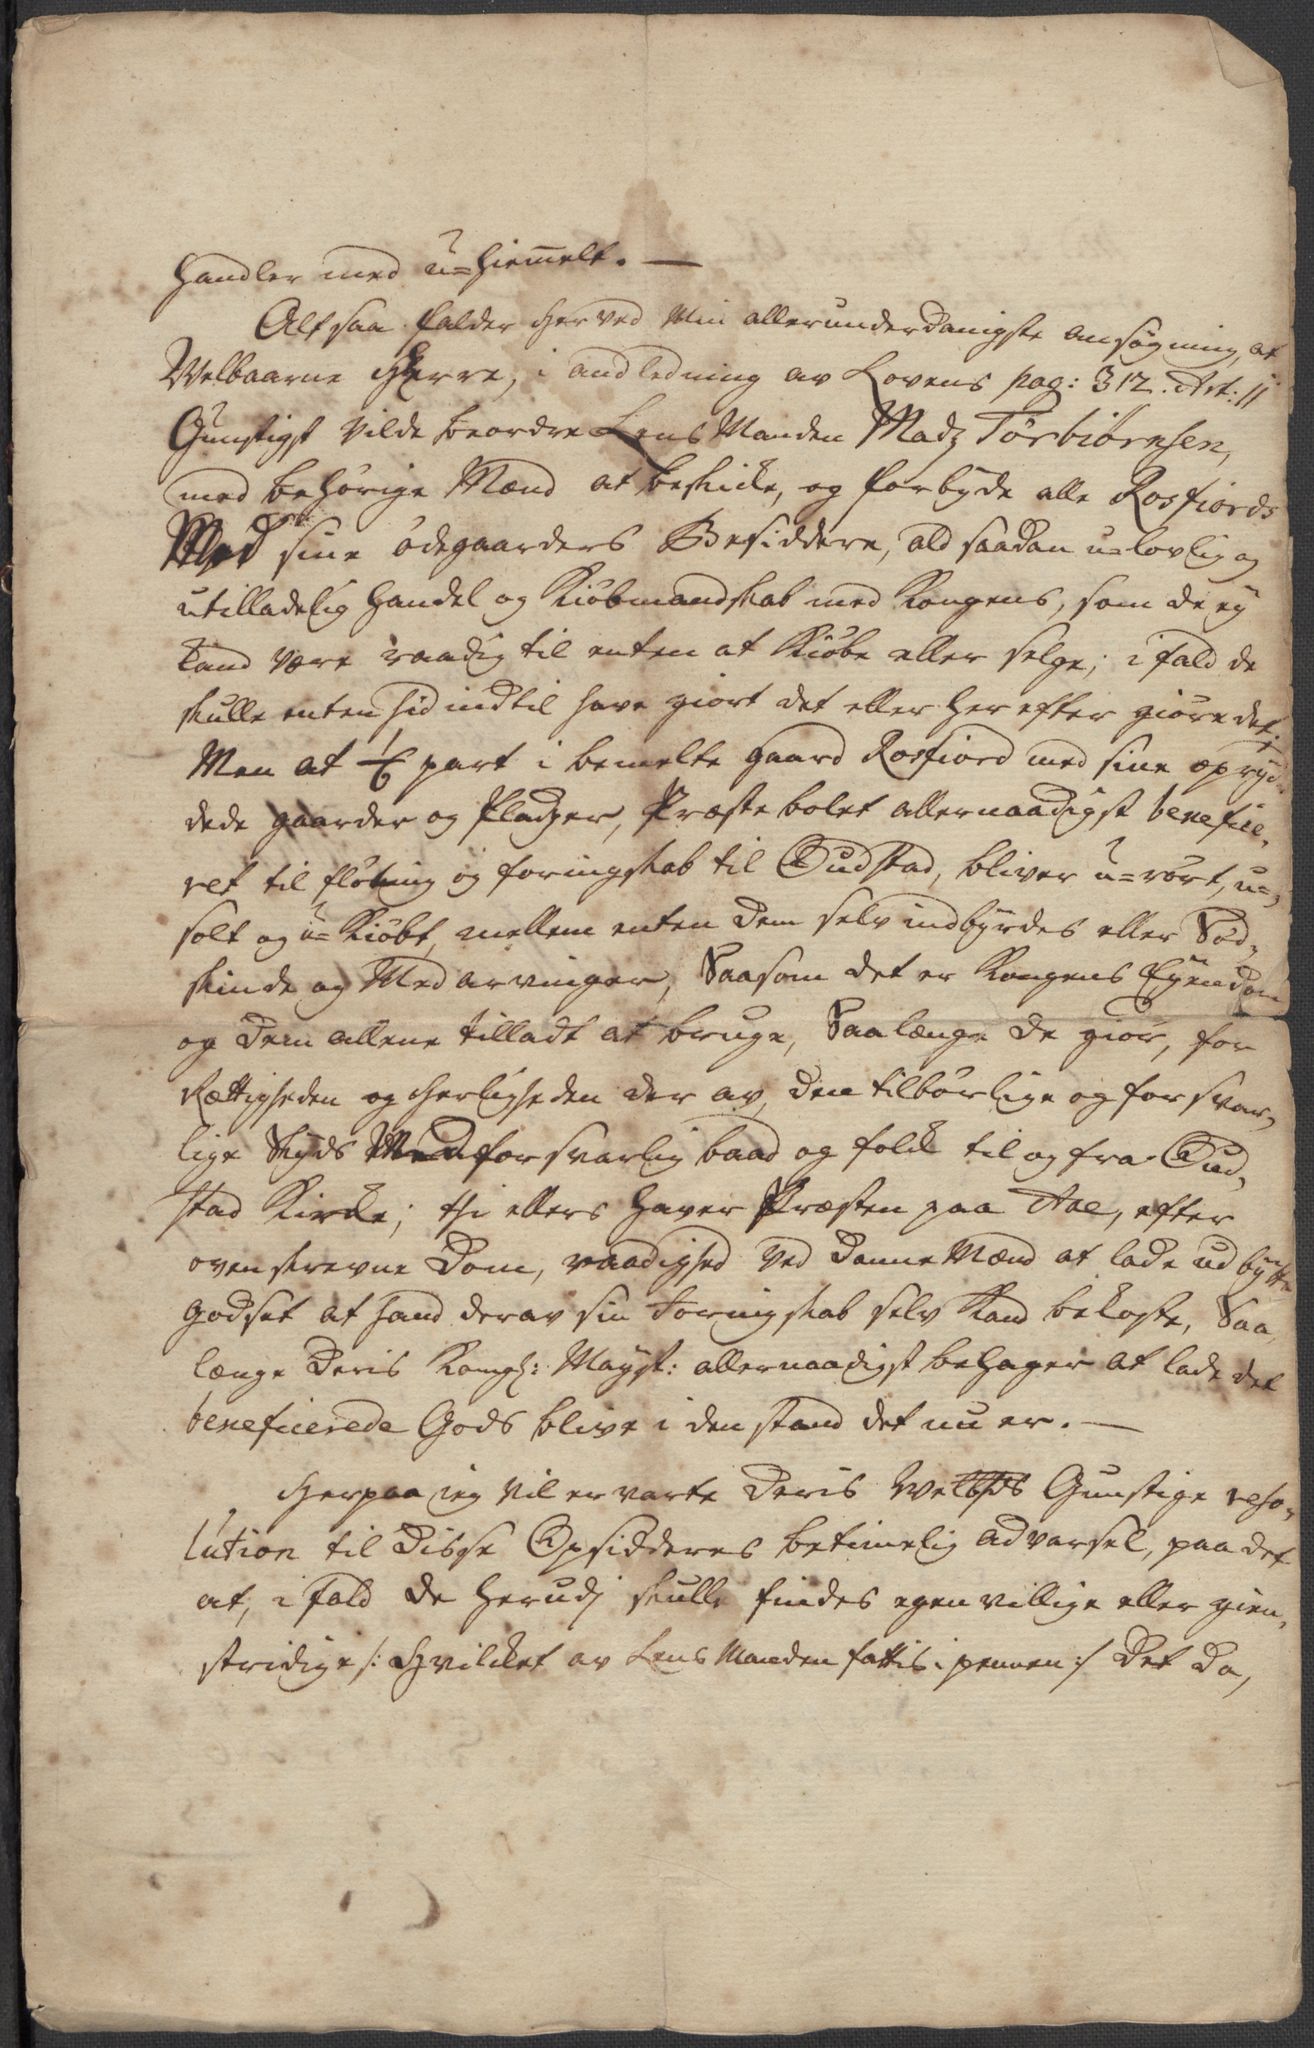 handler med u=hiemmelt. —
Alt saa falder herved Min allerunderdanigste ansøgning, at
Welbaarne Herre, i andledning av Lovens pag: 312. Art: 11
Gunstigst Vilde beordre LensManden Madz Torbiørnsen,
med behørige Mænd at beskicke, og forbyde alle Rosfiords
Med sine ødegaarders Besiddere, ald saadan u=lovlig og
utilladelig handel og Kiøbmandskab med Kongens, som de ey
kand være raadig til enten at Kiøbe eller selge; i fald de
skulle enten hid indtil have giort det eller herefter giøre det.
Men at part i bemelte gaard Rosfiord med sine opryd-
dede gaarder og Pladzer, Præstebolet allernaadigst benefice-
ret til fløtning og foringskab til Oudstad, bliver u=rørt, u=
solt og u=Kiøbt, mellem enten dem selv indbyrdes eller Sød-
skinde og Med arvinger, Saasom det er Kongens Eyendom
og dem allene tilladt at bruge, Saalænge de giør, for
Rættigheden og Herligheden der av, den tilbørlige og forsvar-
lige Skyds Med forsvarlig baad og folck til og fra Oud-
stad Kircke; thi ellers haver Præsten paa Aae, efter
ovenskrevne Dom, raadighed ved Danne Mænd at lade udbytte
Godset at hand derav sin foringskab selv Kand bekoste, Saa
længe Deris Kongl: Mayst: allernaadigst behager at lade det
beneficerede Gods blive i den stand det nu er. —
Herpaa ieg vil ervarte Deris Gunstige reso-
lution til disse Opsidderes betimelig advarsel, paa det
at, i fald de herudj skulle findes egenvillige eller gien-
stridige /: Hvilcket av LensManden fattis i pennen :/ Det da,